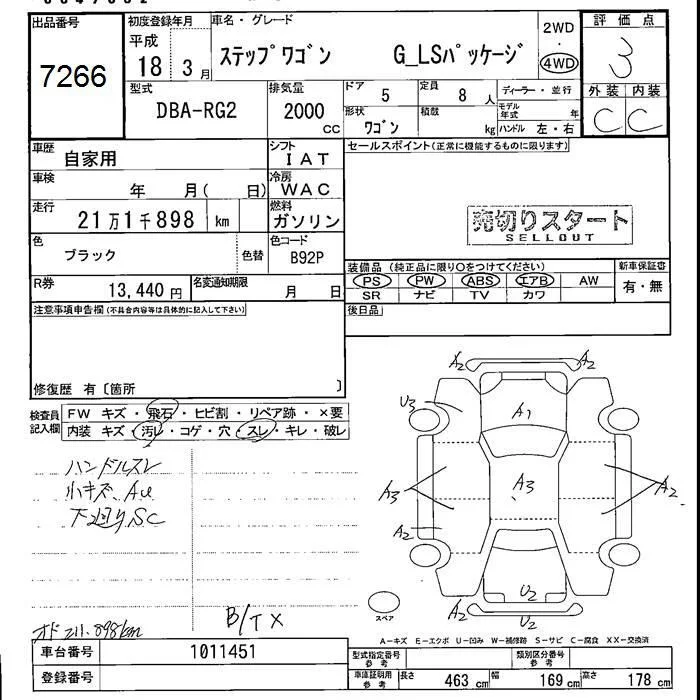 出品番号
7266
初度登録年月
平成
18 3月
車名・グレード
ステップワゴン G_LSパッケージ
2WD
4WD
評価点
3
外装 内装
C C
型式
DBA-RG2
排気量
2000 CC
ドア 5
定員 8人
形状 ワゴン
積載 kg
ディーラー・並行
モデル年式 年
ハンドル 左・右
車歴 自家用
シフト IAT
車検 年 月( 日)
冷房 WAC
走行 21万1千898 km
燃料 ガソリン
色 ブラック 色替
色コード B92P
R券 13,440円
名変通知期限 月 日
セールスポイント(正常に機能するものに限ります)
売切りスタート
SELLOUT
装備品 (純正品に限り○をつけてください)
PS PW ABS エアB AW
SR ナビ TV カワ
新車保証書
有・無
後日品
注意事項申告欄(不具合内容等は具体的に記入して下さい)
修復歴 有〔箇所 〕
検査員記入欄
FW キズ・飛石・ヒビ割・リペア跡・×要
内装 キズ・汚レ・コゲ・穴・スレ・キレ・破レ
ハンドルスレ
小キズ、AU
下廻りSC
オド 211.898km
B/TX
A2 A2
U3
A1
A3
A3
A2
A2
U2
A2
U2
スペア
A-キズ E-エクボ U-凹み W-補修跡 S-サビ C-腐食 XX-交換済
車台番号 1011451
登録番号
型式指定番号 参考
類別区分番号 参考
車庫証明用 参考
長さ 463 cm
幅 169 cm
高さ 178 cm